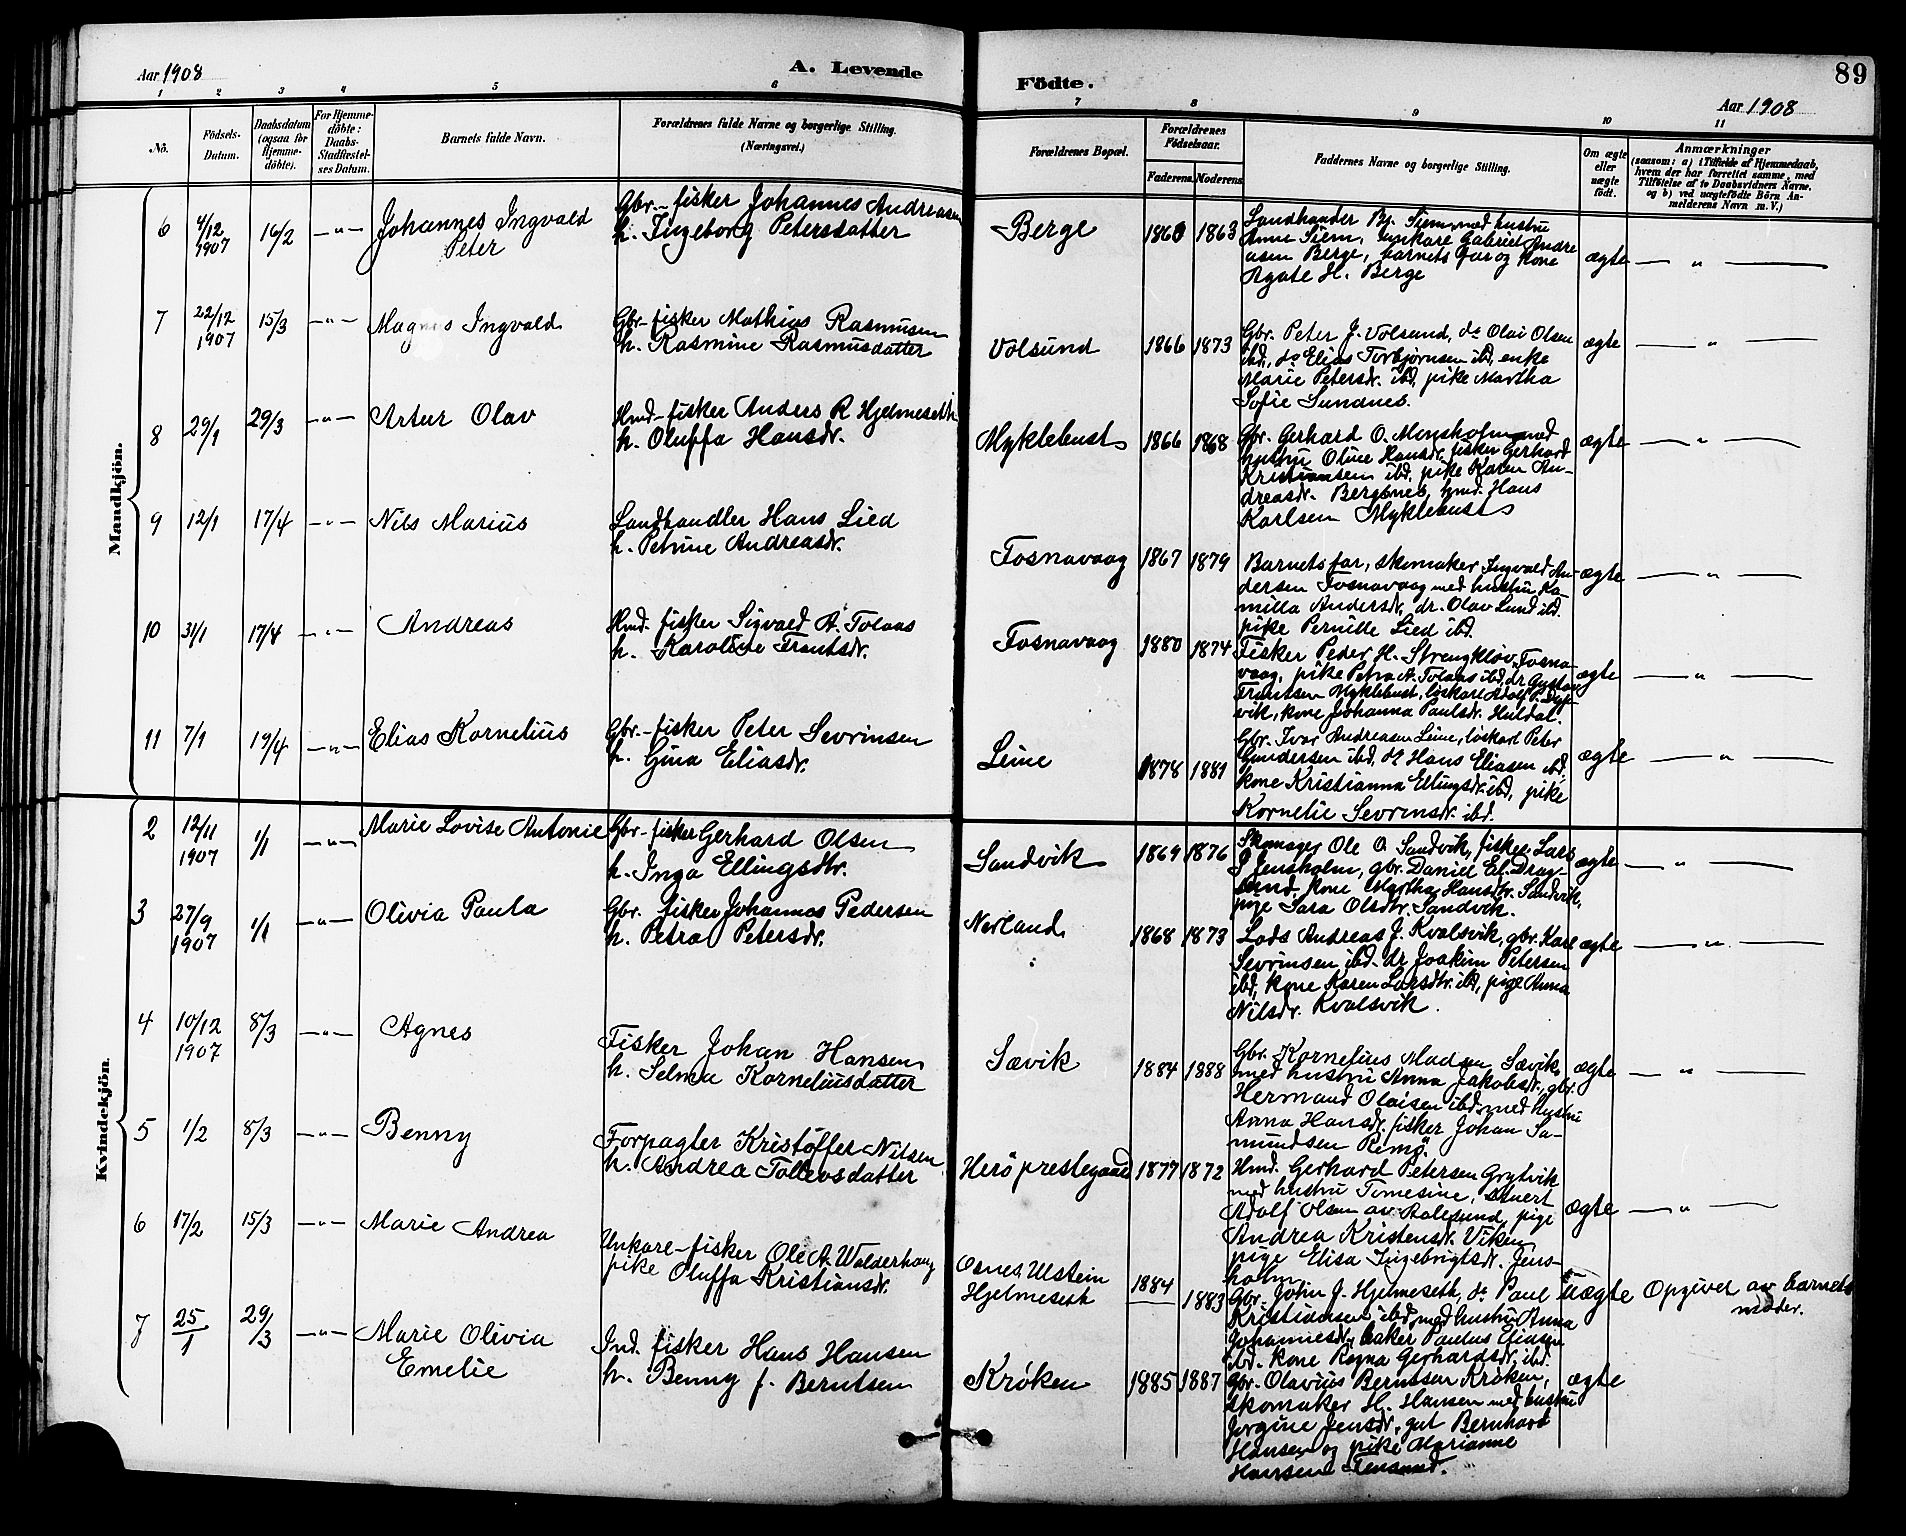 Aar 1908
A. Levende
Födte.
89
Aar 1908
1 2 3 4 5 6 7 8 9 10 11
No.
Födsels-
Datum.
Daabsdatum
(ogsaa for
Hjemme-
döbte).
For Hjemme-
döbte:
Daabs-
Stadfæstel-
ses Datum.
Barnets fulde Navn.
Forældrenes fulde Navne og borgerlige Stilling.
(Næringsvei.)
Forældrenes Bopæl.
Forældrenes
Födselsaar.
Faderens. Moderens.
Faddernes Navne og borgerlige Stilling.
Om ægte
eller
uægte
født.
Anmærkninger
(saasom: a) i Tilfælde af Hjemmedaab,
hvem der har forrettet samme, med
Tilføielse af to Daabsvidners Navne,
og b) ved uægtefødte Börn An-
melderens Navn m. V.)
Mandkjön.
6 4/12 1907 16/2 — " — Johannes Ingvald
Peter
Gbr.-fisker Johannes Andreasen
h. Ingeborg Petersdatter
Berge 1860 1863
Landhandler Bj. Siem med hustru
Anna Siem, ungkare Gabriel Andre
asen Berge, barnets far og kone
Agate H. Berge
ægte — " —
7 22/12 1907 15/3 — " — Magnus Ingvald
Gbr-fisker Mathias Rasmusen
h. Rasmine Rasmusdatter
Volsund 1866 1873
Gbr. Peter J. Volsund, do Olai Olsen
ibd, do Elias Torbjørnsen ibd, enke
Marie Petersdr. ibd, pike Martha
Sofie Sundnes.
ægte — " —
8 29/1 29/3 — " — Artur Olav
Hmd-fisker Anders R Hjelmeseth
h. Oluffa Hansdr.
Myklebust 1866 1868
Gbr. Gerhard O. Mensholm med
hustru Oline Hansdr. fisker Gerhard
Kristiansen ibd, pike Karen An-
dreasdr. Bergsnes, hmd. Hans
Karlsen Myklebust
ægte — " —
9 12/1 17/4 — " — Nils Marius
Landhandler Hans Lied
h. Petrine Andreasdr.
Fosnavaag 1867 1879
Barnets far, skomaker Ingvald An-
dersen Fosnavaag med hustru Ka-
milla Andersdr, dr. Olav Lund ibd.
pike Pernille Lied ibd.
ægte — " —
10 31/1 17/4 — " — Andreas
Hmd. fisker Sigvald A. Tolaas
h. Karoline Frantsdr.
Fosnavaag 1880 1874
Fisker Peder H. Strengkløv, Fosna-
vaag, pike Petra A. Tolaas ibd, dr Gustav
Frantsen Myklebust, løskare Adolf P. Dyp-
svik, kone Johanna Paulsdr. Huldal.
ægte — " —
11 7/1 19/4 — " — Elias Kornelius
Gbr.-fisker Peter Sevrinsen
h. Gina Eliasdr.
Leine 1878 1881
Gbr. Ivar Andreasen Leine, løskarl Peter
Gundersen ibd, do Hans Eliasen ibd.
kone Kristianna Ellingsdr. ibd, pike
Kornelie Sevrinsdr. ibd.
ægte — " —
Kvindekjön.
2 12/11 1907 1/1 — " — Marie Lovise Antonie
Gbr-fisker Gerhard Olsen
h. Inga Ellingsdtr.
Sandvik 1869 1876
Skomager Ole O Sandvik, fisker Lars
J Jensholm, gbr. Daniel El. Drag-
sund, kone Martha Hansdtr. Sandvik,
pige Sara Olsdtr. Sandvik.
ægte — " —
3 27/9 1907 1/1 — " — Olivia Paula
Gbr. fisker Johannes Pedersen
h. Petra Petersdr.
Nerland 1868 1873
Lods Andreas J. Kvalsvik, gbr. Karl
Sevrinsen ibd. dr Joakim Petersen
ibd, kone Karen Larsdtr. ibd, pige Anna
Nilsdr. Kvalsvik.
ægte — " —
4 10/12 1907 8/3 — " — Agnes
Fisker Johan Hansen
h. Selma Korneliusdatter
Sævik 1884 1888
Gbr. Kornelius Madsen Sævik
med hustru Anna Jakobsdr., gbr.
Hermand Olaisen ibd. med hustru
Anna Hansdr. fisker Johan Sa-
mundsen Remø.
ægte — " —
5 1/2 8/3 — " — Benny
Forpagter Kristoffer Nilsen
h. Andrea Tollevsdatter
Herø prestegaard 1877 1872
Hmd. Gerhard Petersen Grytvik
med hustru Tomesine, stuert
Adolf Olsen av Aalesund, pige
Andrea Kristensdr. Viken,
pige Elisa Ingebrigtsdr. Jens-
holm
ægte — " —
6 17/2 15/3 — " — Marie Andrea
Unkare-fisker Ole A. Walderhaug
pike Oluffa Kristiansdr.
Osnes Ulstein
Hjelmeseth
1884 1883
Gbr. John J. Hjelmeseth, do Paul
Kristiansen ibd, med hustru Anna
Johannesdr, fisker Paulus Eliasen
ibd. kone Ragna Gerhardsdr, ibd.
uægte Opgivet av barnets
moder.
7 25/1 29/3 — " — Marie Olivia
Emelie
Ind. fisker Hans Hansen
h. Benny f. Berntsen
Krøken 1885 1887
Gbr. Olavius Berntsen Krøken,
skomaker H. Hansen med hustru
Jørgine Jensdr, gut Bernhard
Hansen og pike Marianne
Hansine
ægte